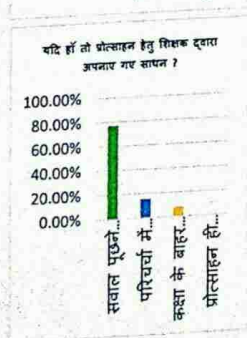 यदि हाँ तो प्रोत्साहन हेतु शिक्षक द्वारा
अपनाए गए साधन ?
100.00%
80.00%
60.00%
40.00%
20.00%
0.00%
सवाल पूछने...
परिचर्चा में...
कक्षा के बाहर...
प्रोत्साहन ही...